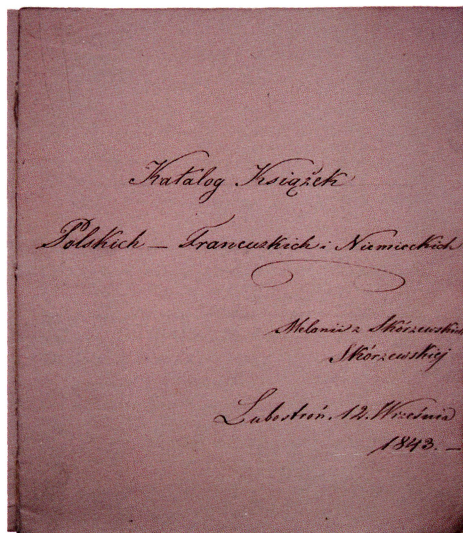 Katalog Książek
Polskich — Francuskich i Niemieckich
Melanii z Skórzewskich
Skórzewskiej
Lubostroń. 12. Września
1843. —